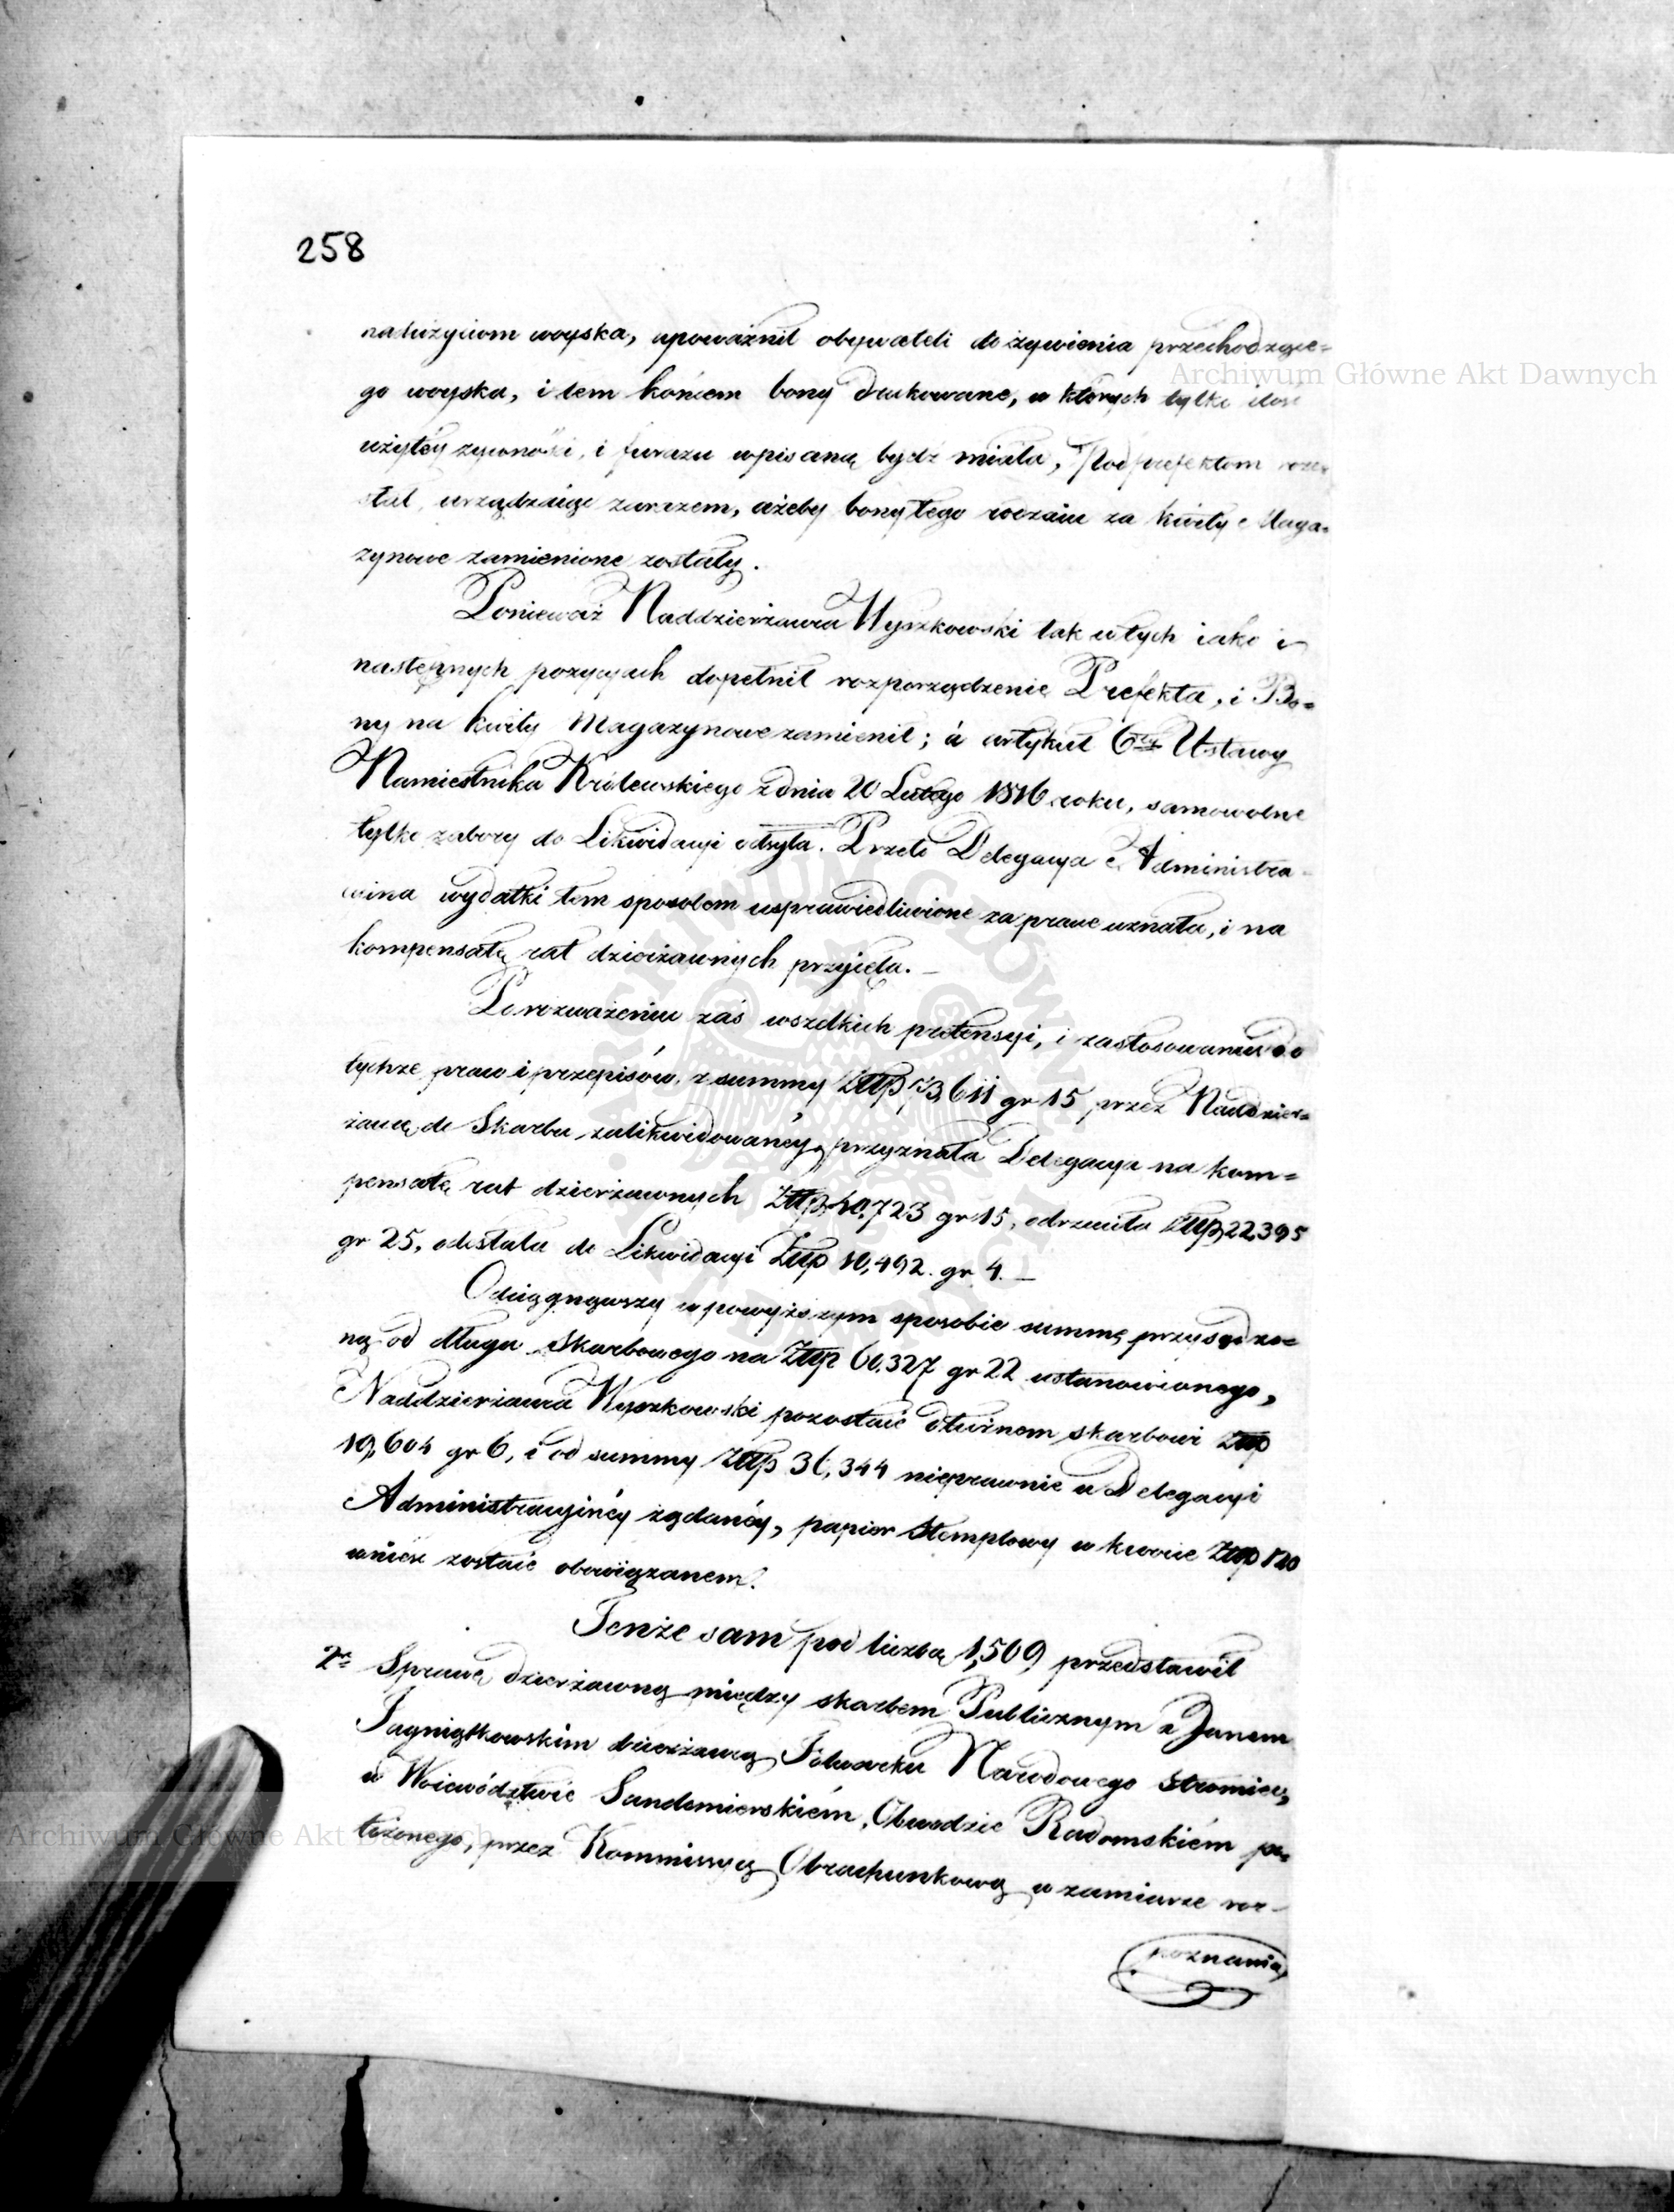 258
nadużyciom woyska, upoważnił obywateli do żywienia przechodzące=
Archiwum Główne Akt Dawnych
go woyska, i tem końcem bony drukowane, w których tylko ilość
użytéy żywności, i furażu wpisaną bydź miała, Podprefektom roze
słał, urządzaiąc zarazem, ażeby bony tego rodzaiu za kwity Maga=
zynowe zamienione zostały.
Ponieważ Naddzierżawca Wyszkowski tak w tych iako i
następnych pozycyach dopełnił rozporządzenie Prefekta, i Bo=
ny na kwity Magazynowe zamienił; á artykuł 6ty Ustawy
Namiestnika Królewskiego z dnia 20 Lutego 1816 roku, samowolne
tylko zabory do Likwidacyi odsyła. Przeto Delegacya Administra=
cyina wydatki tem sposobem usprawiedliwione za prawe uznała, i na
kompensatę rat dzierżawnych przyięła. —
Po rozważeniu zaś wszelkich pretensyi, i zastosowaniu do
tychże praw i przepisów, z summy Złtp 73,611 gr 15 przez Naddzier=
żawcę do Skarbu zalikwidowanéy, przyznała Delegacya na kom=
pensatę rat dzierżawnych Złtp 40,723 gr 15, odrzuciła Złtp 22,395
gr 25, odesłała do Likwidacyi Złtp 10,492. gr 4. —
Odciągnąwszy w powyższym sposobie summę przysądzo=
ną od długu Skarbowego na Złtp 60,327 gr 22 ustanowionego,
Naddzierżawca Wyszkowski pozostaie dłużnem skarbowi Złtp
19,604 gr 6, i od summy Złtp 36,344 nieprawnie w Delegacyi
Administracyinéy żądanéy, papier Stemplowy w kwocie Złtp 120
wnieść zostaie obowiązanem.
Tenże sam pod liczbą 1,509 przedstawił
2re Sprawę dzierżawną między skarbem Publicznym a Janem
Jagniątkowskim dzierżawcą Folwarku Narodowego Stromiec,
w Woiewództwie Sandomierskiém, Obwodzie Radomskiém po=
Archiwum Główne Akt Dawnych
łożonego, przez Kommissyą Obrachunkową w zamiarze roz=
poznania